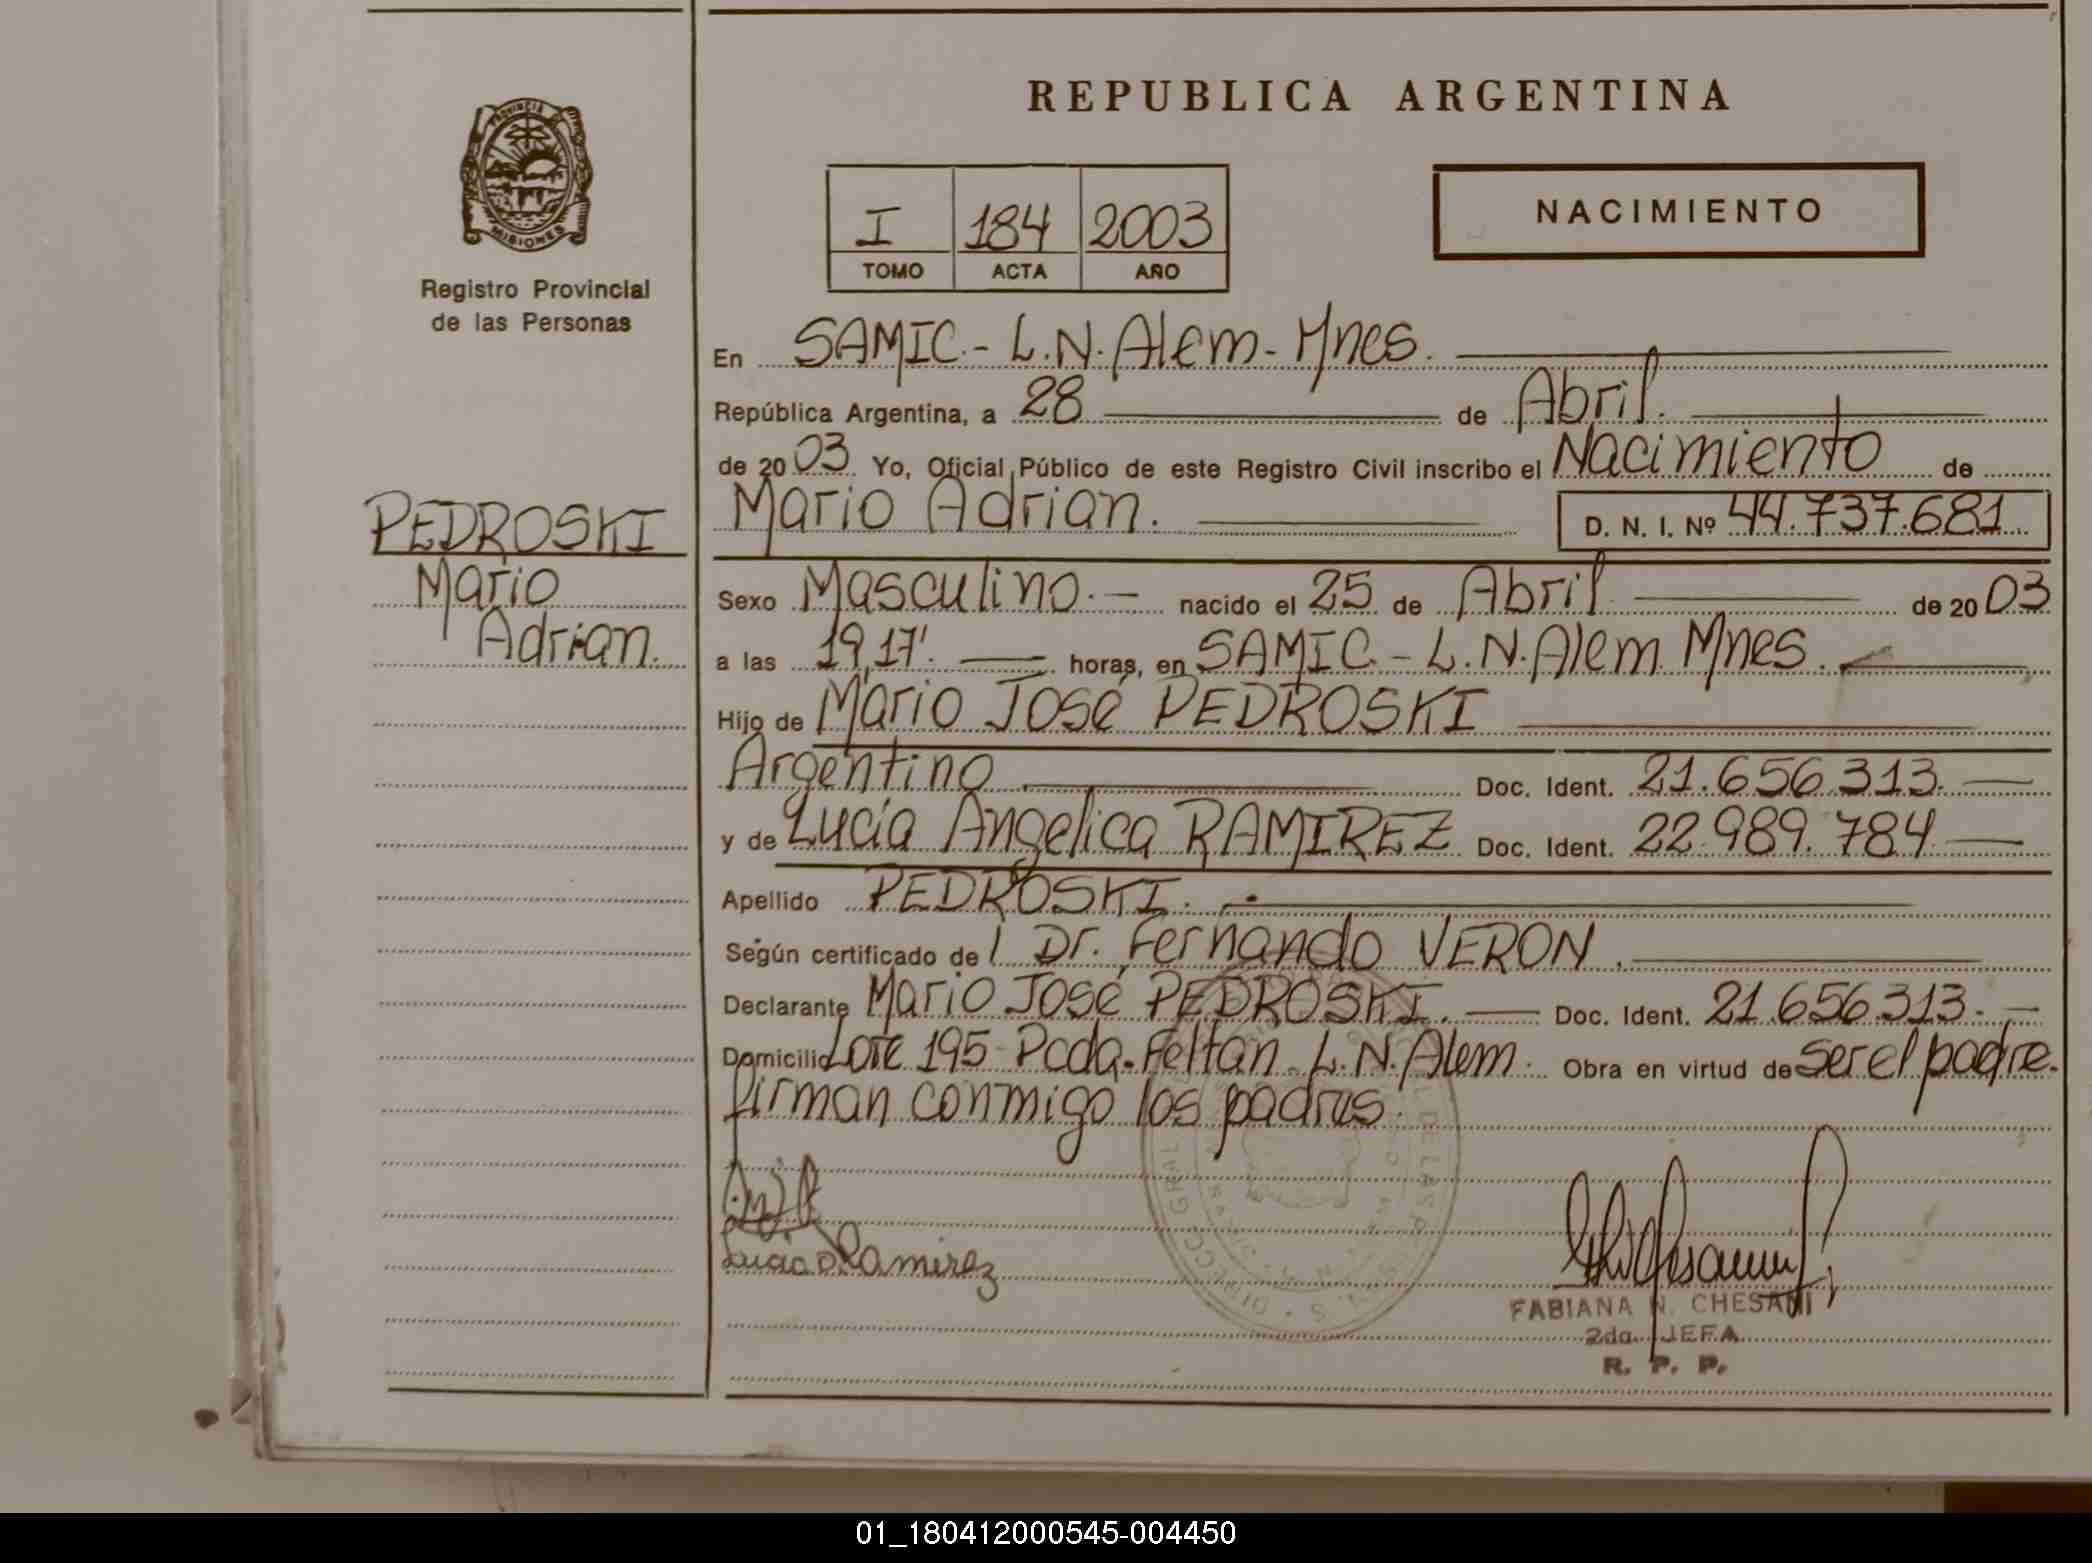 REPUBLICA ARGENTINA
PROVINCIA DE
MISIONES
Registro Provincial
de las Personas
I 184 2003
TOMO ACTA AÑO
NACIMIENTO
En SAMIC.- L.N. Alem- Mnes.
República Argentina, a 28 de Abril.
de 2003. Yo, Oficial Público de este Registro Civil inscribo el Nacimiento de
Mario Adrian. D. N. I. Nº 44.737.681
PEDROSKI
Mario
Adrian.
Sexo Masculino.- nacido el 25 de Abril de 2003
a las 19,17'. horas, en SAMIC - L.N. Alem Mnes.
Hijo de Mario José PEDROSKI
Argentino Doc. Ident. 21.656.313.
y de Lucía Angelica RAMIREZ Doc. Ident. 22.989.784
Apellido PEDROSKI.
Según certificado del Dr. Fernando VERON.
Declarante Mario José PEDROSKI. Doc. Ident. 21.656.313.
Domicilio Lote 195 Pcda. Feltan. L.N. Alem. Obra en virtud de ser el padre.
firman conmigo los padres.
Ramirez
FABIANA N. CHESANI
2da. JEFA
R. P. P.
01_180412000545-004450